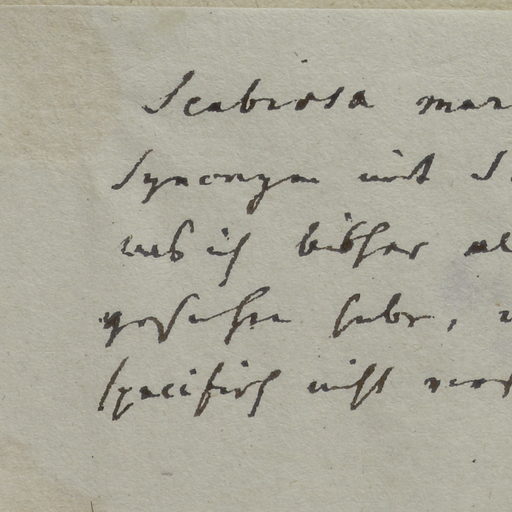 Scabiosa mar
Synonym mit S
was ich bisher al
gesehen habe,
specifisch nicht ver